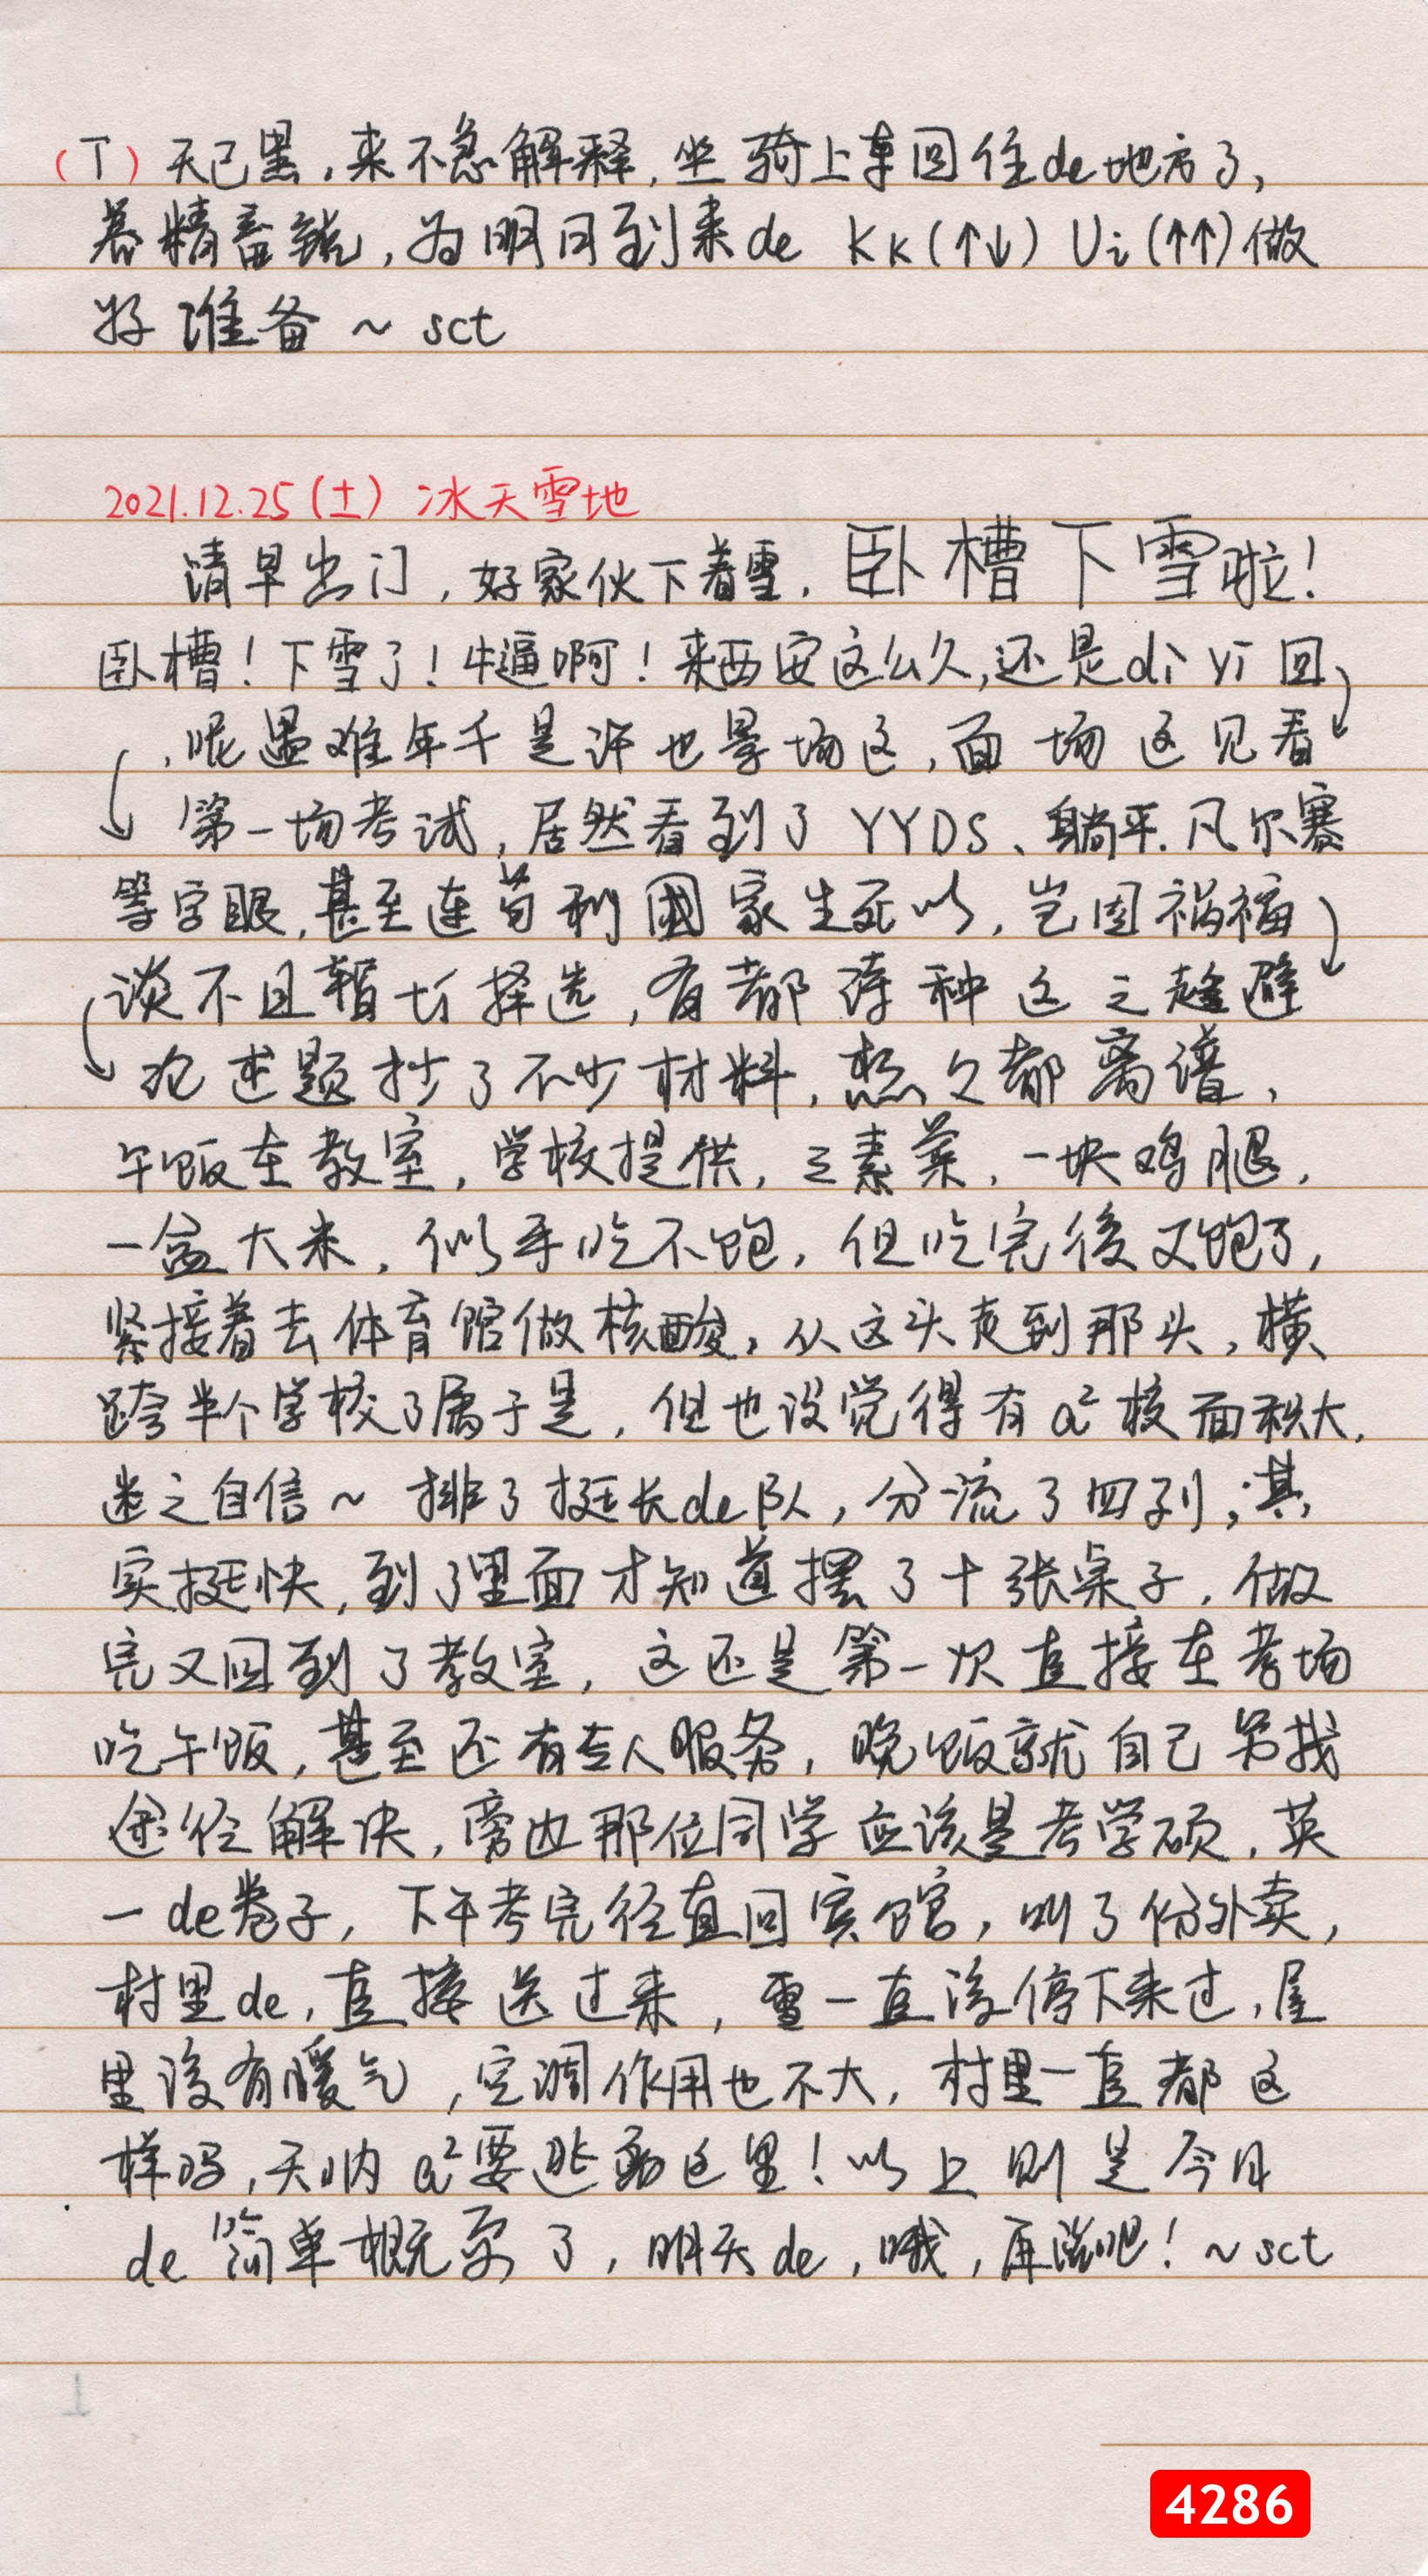 (丅) 天已黑，来不急解释，坐骑上车回住de地方了，
养精蓄锐，为明日到来de KK(↑↓) Ui(↑↑)做
好准备～sct
2021.12.25(土) 冰天雪地
清早出门，好家伙下着雪，卧槽下雪啦！
卧槽！下雪了！牛逼啊！来西安这么久，还是dì yī回
看见这场面，这场景也许是千年难遇呢，
第一场考试，居然看到了YYDS、躺平、凡尔赛
等字眼，甚至连苟利國家生死以，岂因祸福
避趋之这种诗都有，选择切暂且不谈
论述题抄了不少材料，怎么都离谱，
午饭在教室，学校提供，三素菜，一块鸡腿，
一盒大米，似乎吃不饱，但吃完後又饱了，
紧接着去体育馆做核酸，从这头走到那头，横
跨半个学校了属于是，但也没觉得有a²校面积大，
迷之自信～排了挺长de队，分流了四列；其
实挺快，到了里面才知道摆了十张桌子，做
完又回到了教室，这还是第一次直接在考场
吃午饭，甚至还有专人服务，晚饭就自己另找
途径解决，旁边那位同学应该是考学硕，英
一de卷子，下午考完径直回宾馆，叫了份外卖，
村里de，直接送过来，雪一直没停下来过，屋
里没有暖气，空调作用也不大，村里一直都这
样吗，天呐a²要逃离这里！以上则是今日
de简单概要了，明天de，哦，再说吧！～sct
4286